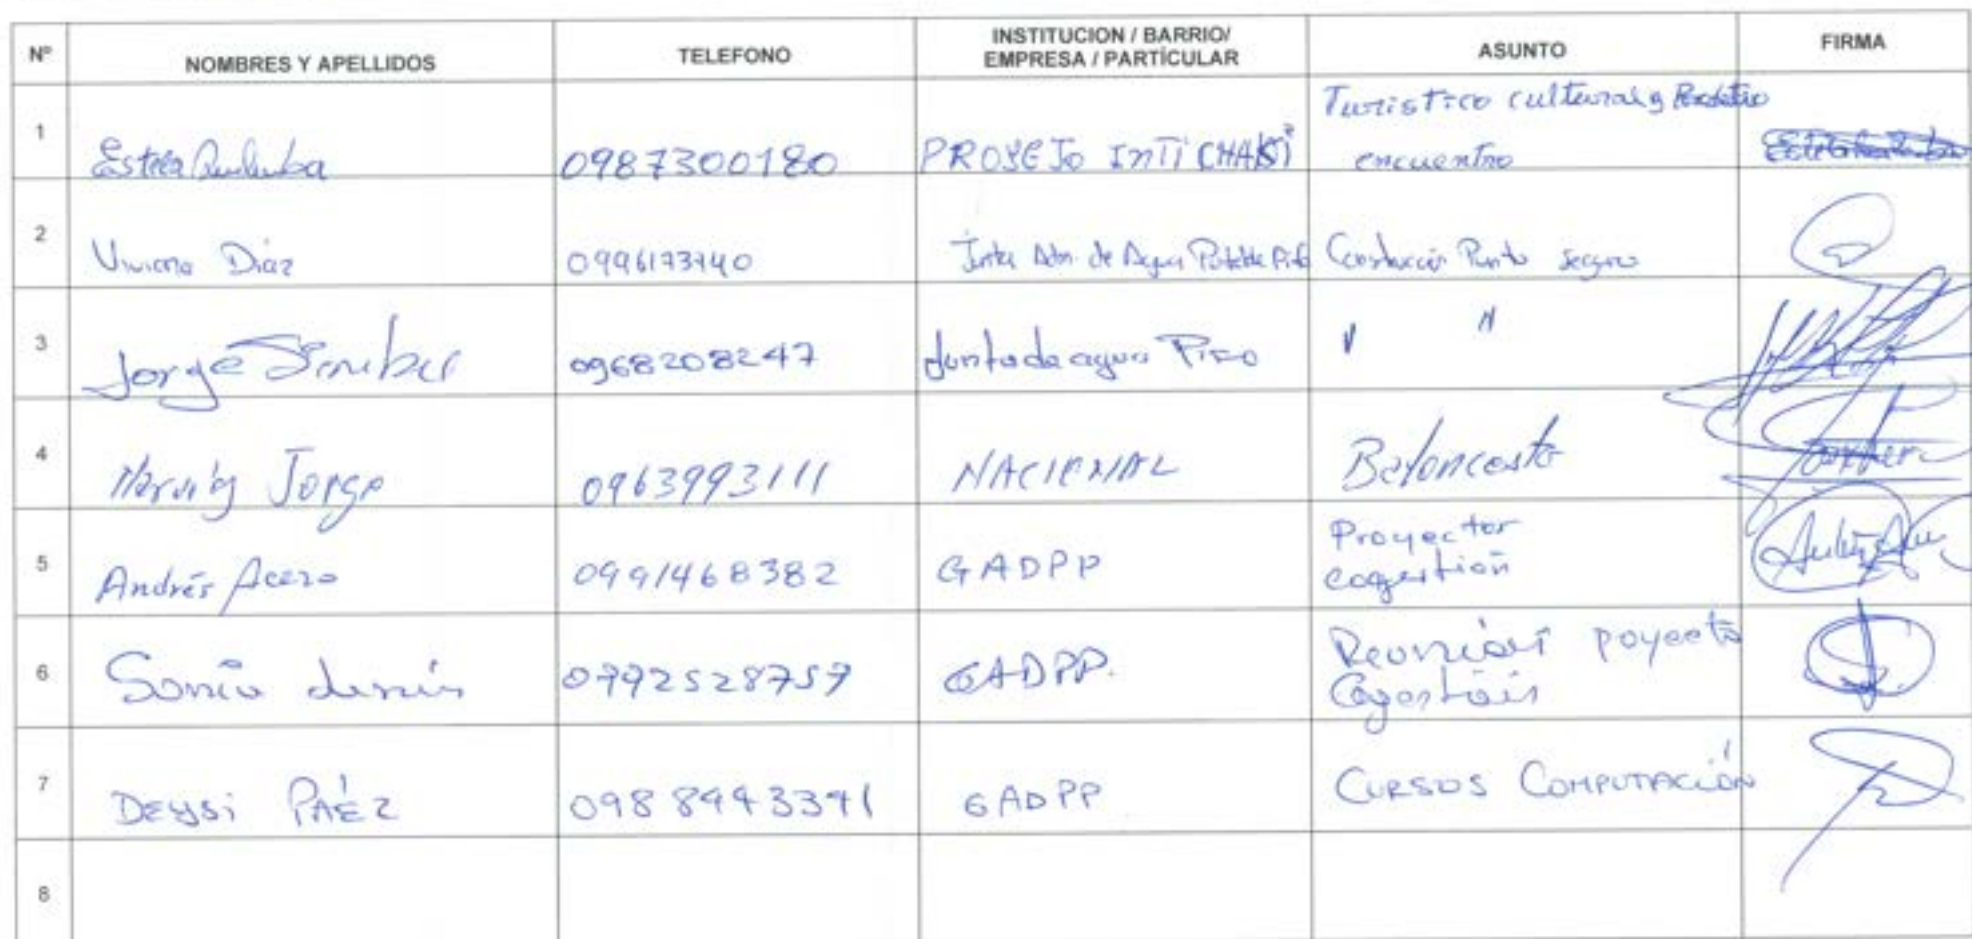 Nº NOMBRES Y APELLIDOS TELEFONO INSTITUCION / BARRIO/ EMPRESA / PARTÍCULAR ASUNTO FIRMA
1 Estela 0987300180 PROYEJO INTI CHASKI Turistico cultural y
encuentro
2 Viviana Diaz 0996173740 Junta Adm. de Agua Potable Pifo Construcción Punto Seguro
3 Jorge 0968208247 Junta de agua Pifo " "
4 Jorge 0963993111 NACIONAL Baloncesto
5 Andrés Acero 0991468382 GADPP Proyector
cogestión
6 Sonia 0992528757 GADPP. Reunión poyecto
Cogestión
7 DEYSI PAÉZ 0988943391 GADPP CURSOS COMPUTACIÓN
8